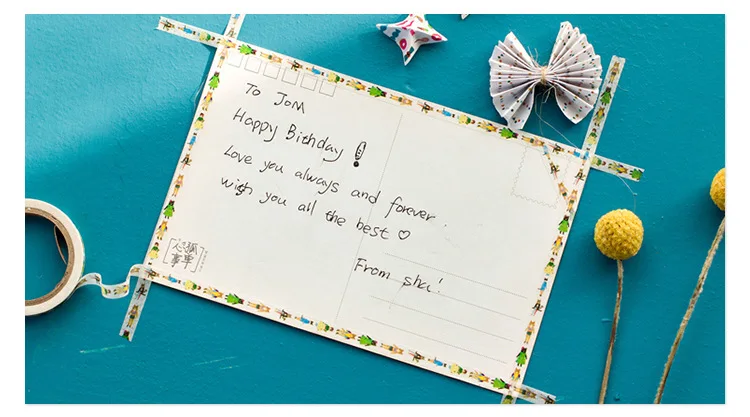 To JoM
Happy Bithday!
Love you always and forever.
wish you all the best ♡
From